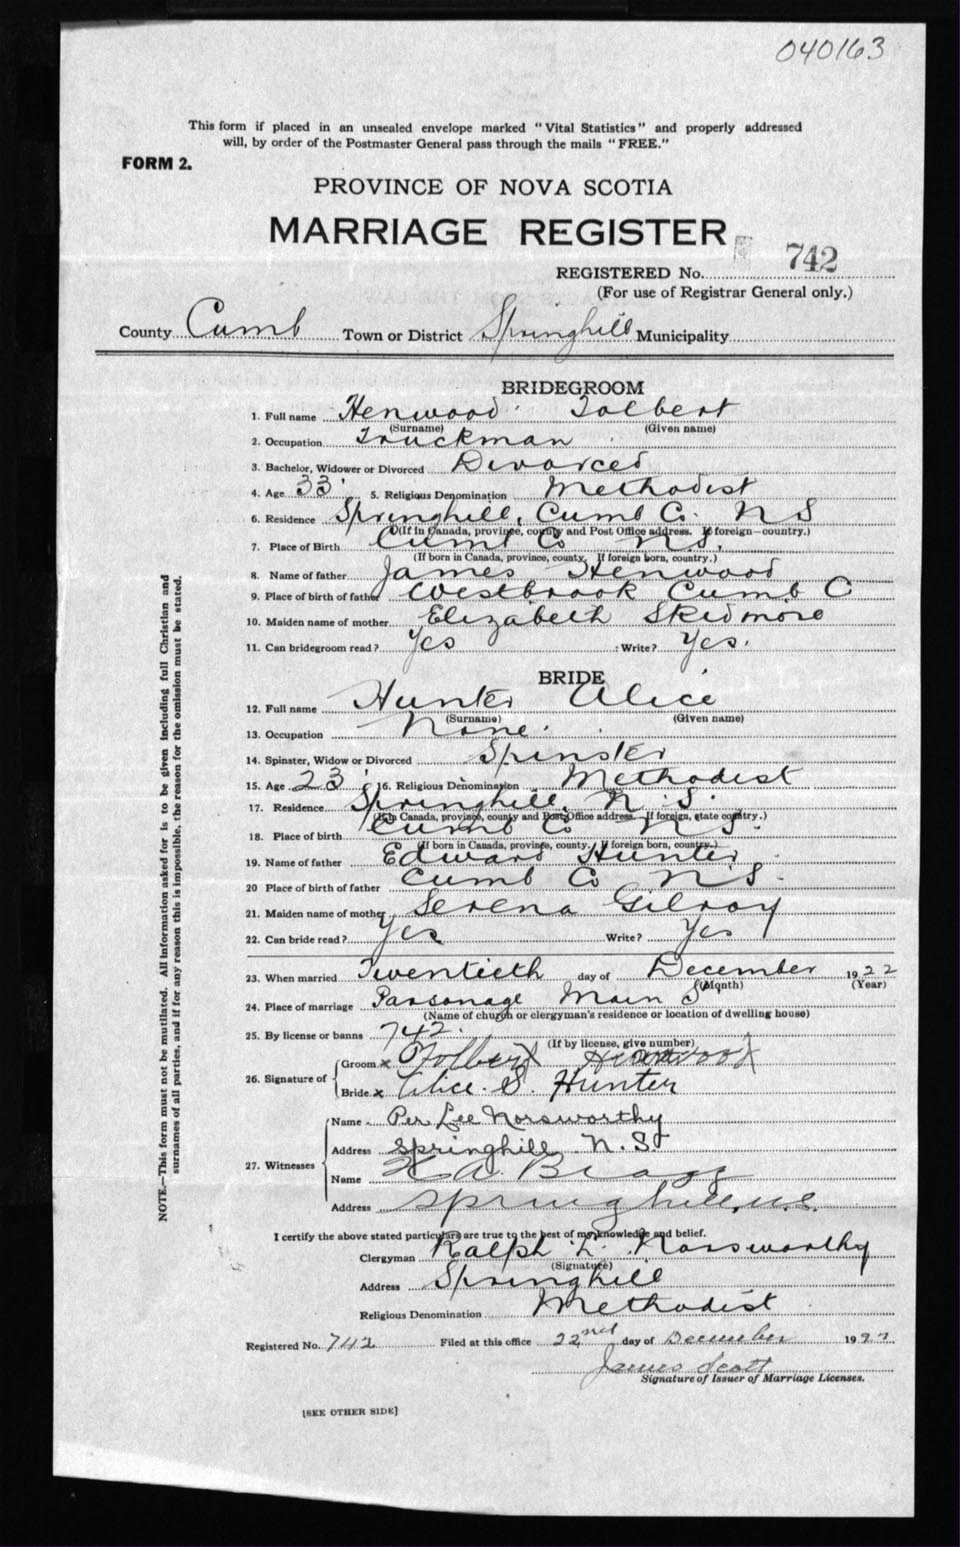 040163
This form if placed in an unsealed envelope marked "Vital Statistics" and properly addressed
will, by order of the Postmaster General pass through the mails "FREE."
FORM 2.
PROVINCE OF NOVA SCOTIA
MARRIAGE REGISTER
REGISTERED No. 742
(For use of Registrar General only.)
County Cumb Town or District Springhill Municipality
BRIDEGROOM
1. Full name Henwood Tolbert
(Surname) (Given name)
2. Occupation Truckman
3. Bachelor, Widower or Divorced Divorced
4. Age 33 5. Religious Denomination Methodist
6. Residence Springhill, Cumb Co. N S
(If in Canada, province, county and Post Office address. If foreign—country.)
7. Place of Birth Cumb Co N S.
(If born in Canada, province, county. If foreign born, country.)
8. Name of father James Henwood
9. Place of birth of father Westbrook Cumb C
10. Maiden name of mother Elizabeth Skidmore
11. Can bridegroom read? Yes Write? Yes.
BRIDE
12. Full name Hunter Alice
(Surname) (Given name)
13. Occupation None.
14. Spinster, Widow or Divorced Spinster
15. Age 23 16. Religious Denomination Methodist
17. Residence Springhill, N. S.
(If in Canada, province, county and Post Office address. If foreign, state country.)
18. Place of birth Cumb Co N S.
(If born in Canada, province, county. If foreign born, country.)
19. Name of father Edward Hunter
20 Place of birth of father Cumb Co N S.
21. Maiden name of mother Serena Gilroy
22. Can bride read? Yes Write? Yes
23. When married Twentieth day of December 1922
(Month) (Year)
24. Place of marriage Parsonage Main S
(Name of church or clergyman's residence or location of dwelling house)
25. By license or banns 742.
(If by license, give number)
26. Signature of
Groom x Tolbert Henwood
Bride x Alice. S. Hunter
27. Witnesses
Name Per Lee Norsworthy
Address Springhill N. S.
Name A. Bragg
Address Springhill, n.s.
I certify the above stated particulars are true to the best of my knowledge and belief.
Clergyman Ralph L. Norsworthy
(Signature)
Address Springhill
Religious Denomination Methodist
Registered No. 742 Filed at this office 22nd day of December 1922
James Scott
Signature of Issuer of Marriage Licenses.
[SEE OTHER SIDE]
NOTE.—This form must not be mutilated. All information asked for is to be given including full Christian and
surnames of all parties, and if for any reason this is impossible, the reason for the omission must be stated.